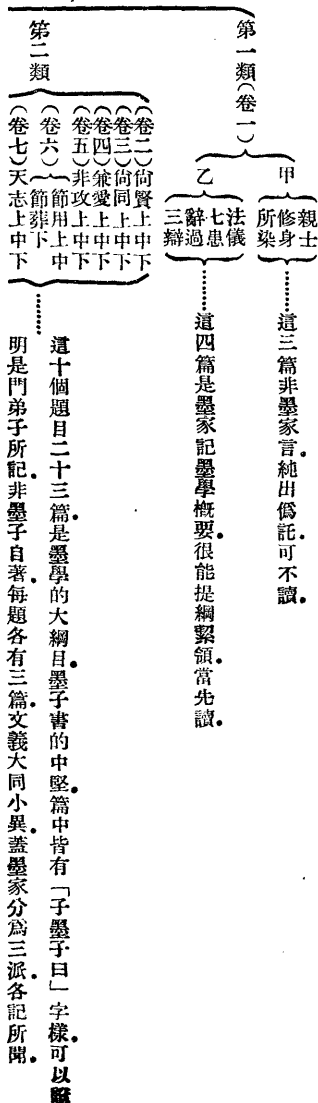 第一類(卷一)
甲
親士
修身
所染
這三篇非墨家言。純出僞託。可不讀。
乙
法儀
七患
辭過
三辯
這四篇是墨家記墨學槪要。很能提綱絜領。當先讀。
第二類
(卷二)尙賢上中下
(卷三)尙同上中下
(卷四)兼愛上中下
(卷五)非攻上中下
(卷六)
節用上中
節葬下
(卷七)天志上中下
這十個題目二十三篇。是墨學的大綱目。墨子書的中堅。篇中皆有「子墨子曰」字樣。可以證
明是門弟子所記。非墨子自著。每題各有三篇。文義大同小異。蓋墨家分爲三派。各記所聞。